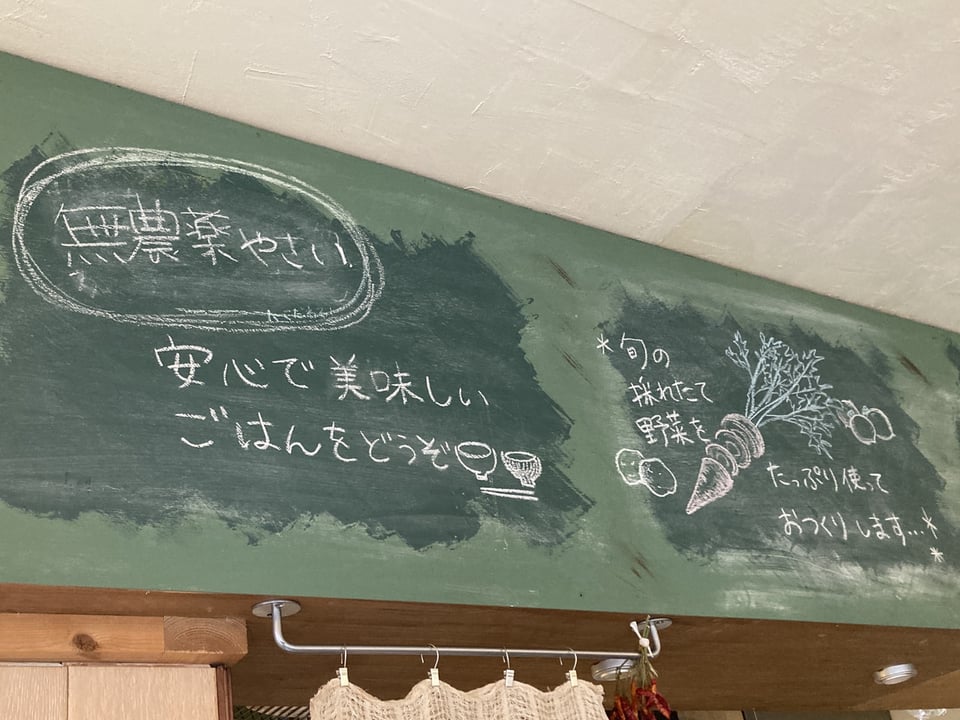 無農薬やさい
安心で美味しい
ごはんをどうぞ
*旬の
採れたて
野菜を
たっぷり使って
おつくりします…*
*